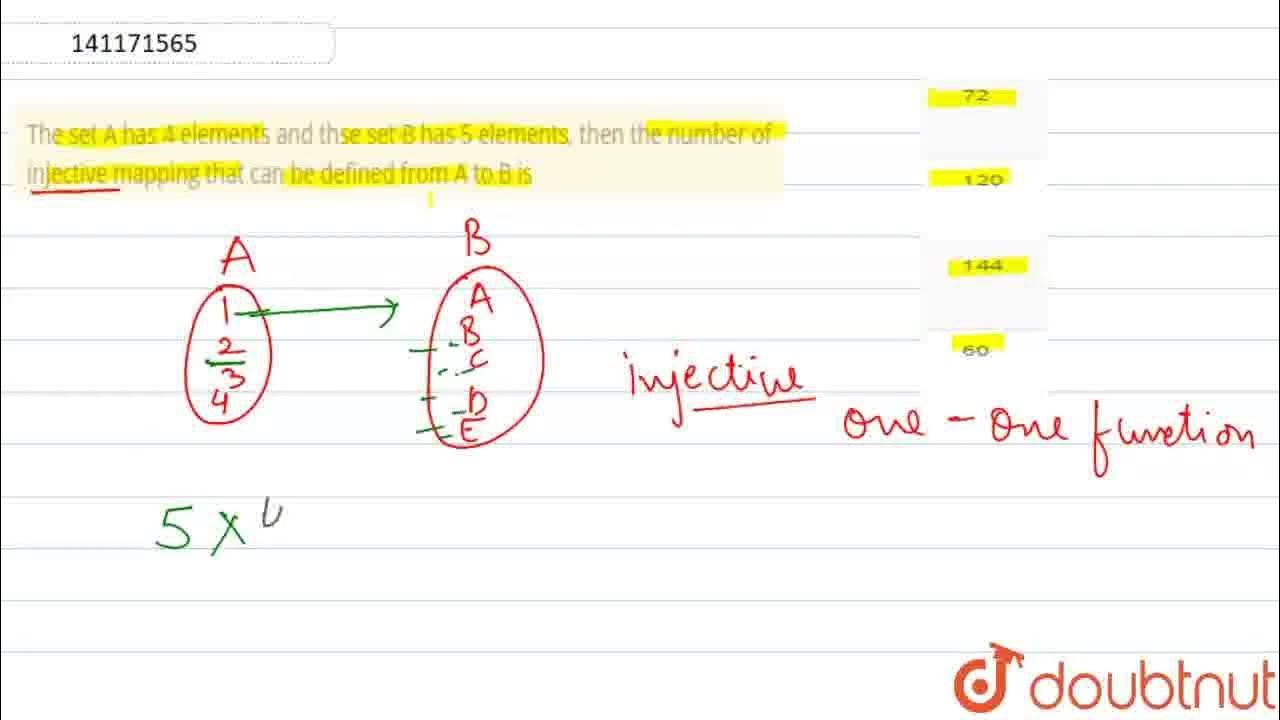 141171565
The set A has 4 elements and thse set B has 5 elements, then the number of
injective mapping that can be defined from A to B is
72
120
144
60
A
B
1
2
3
4
A
B
C
D
E
injective
one - one function
5 x
doubtnut